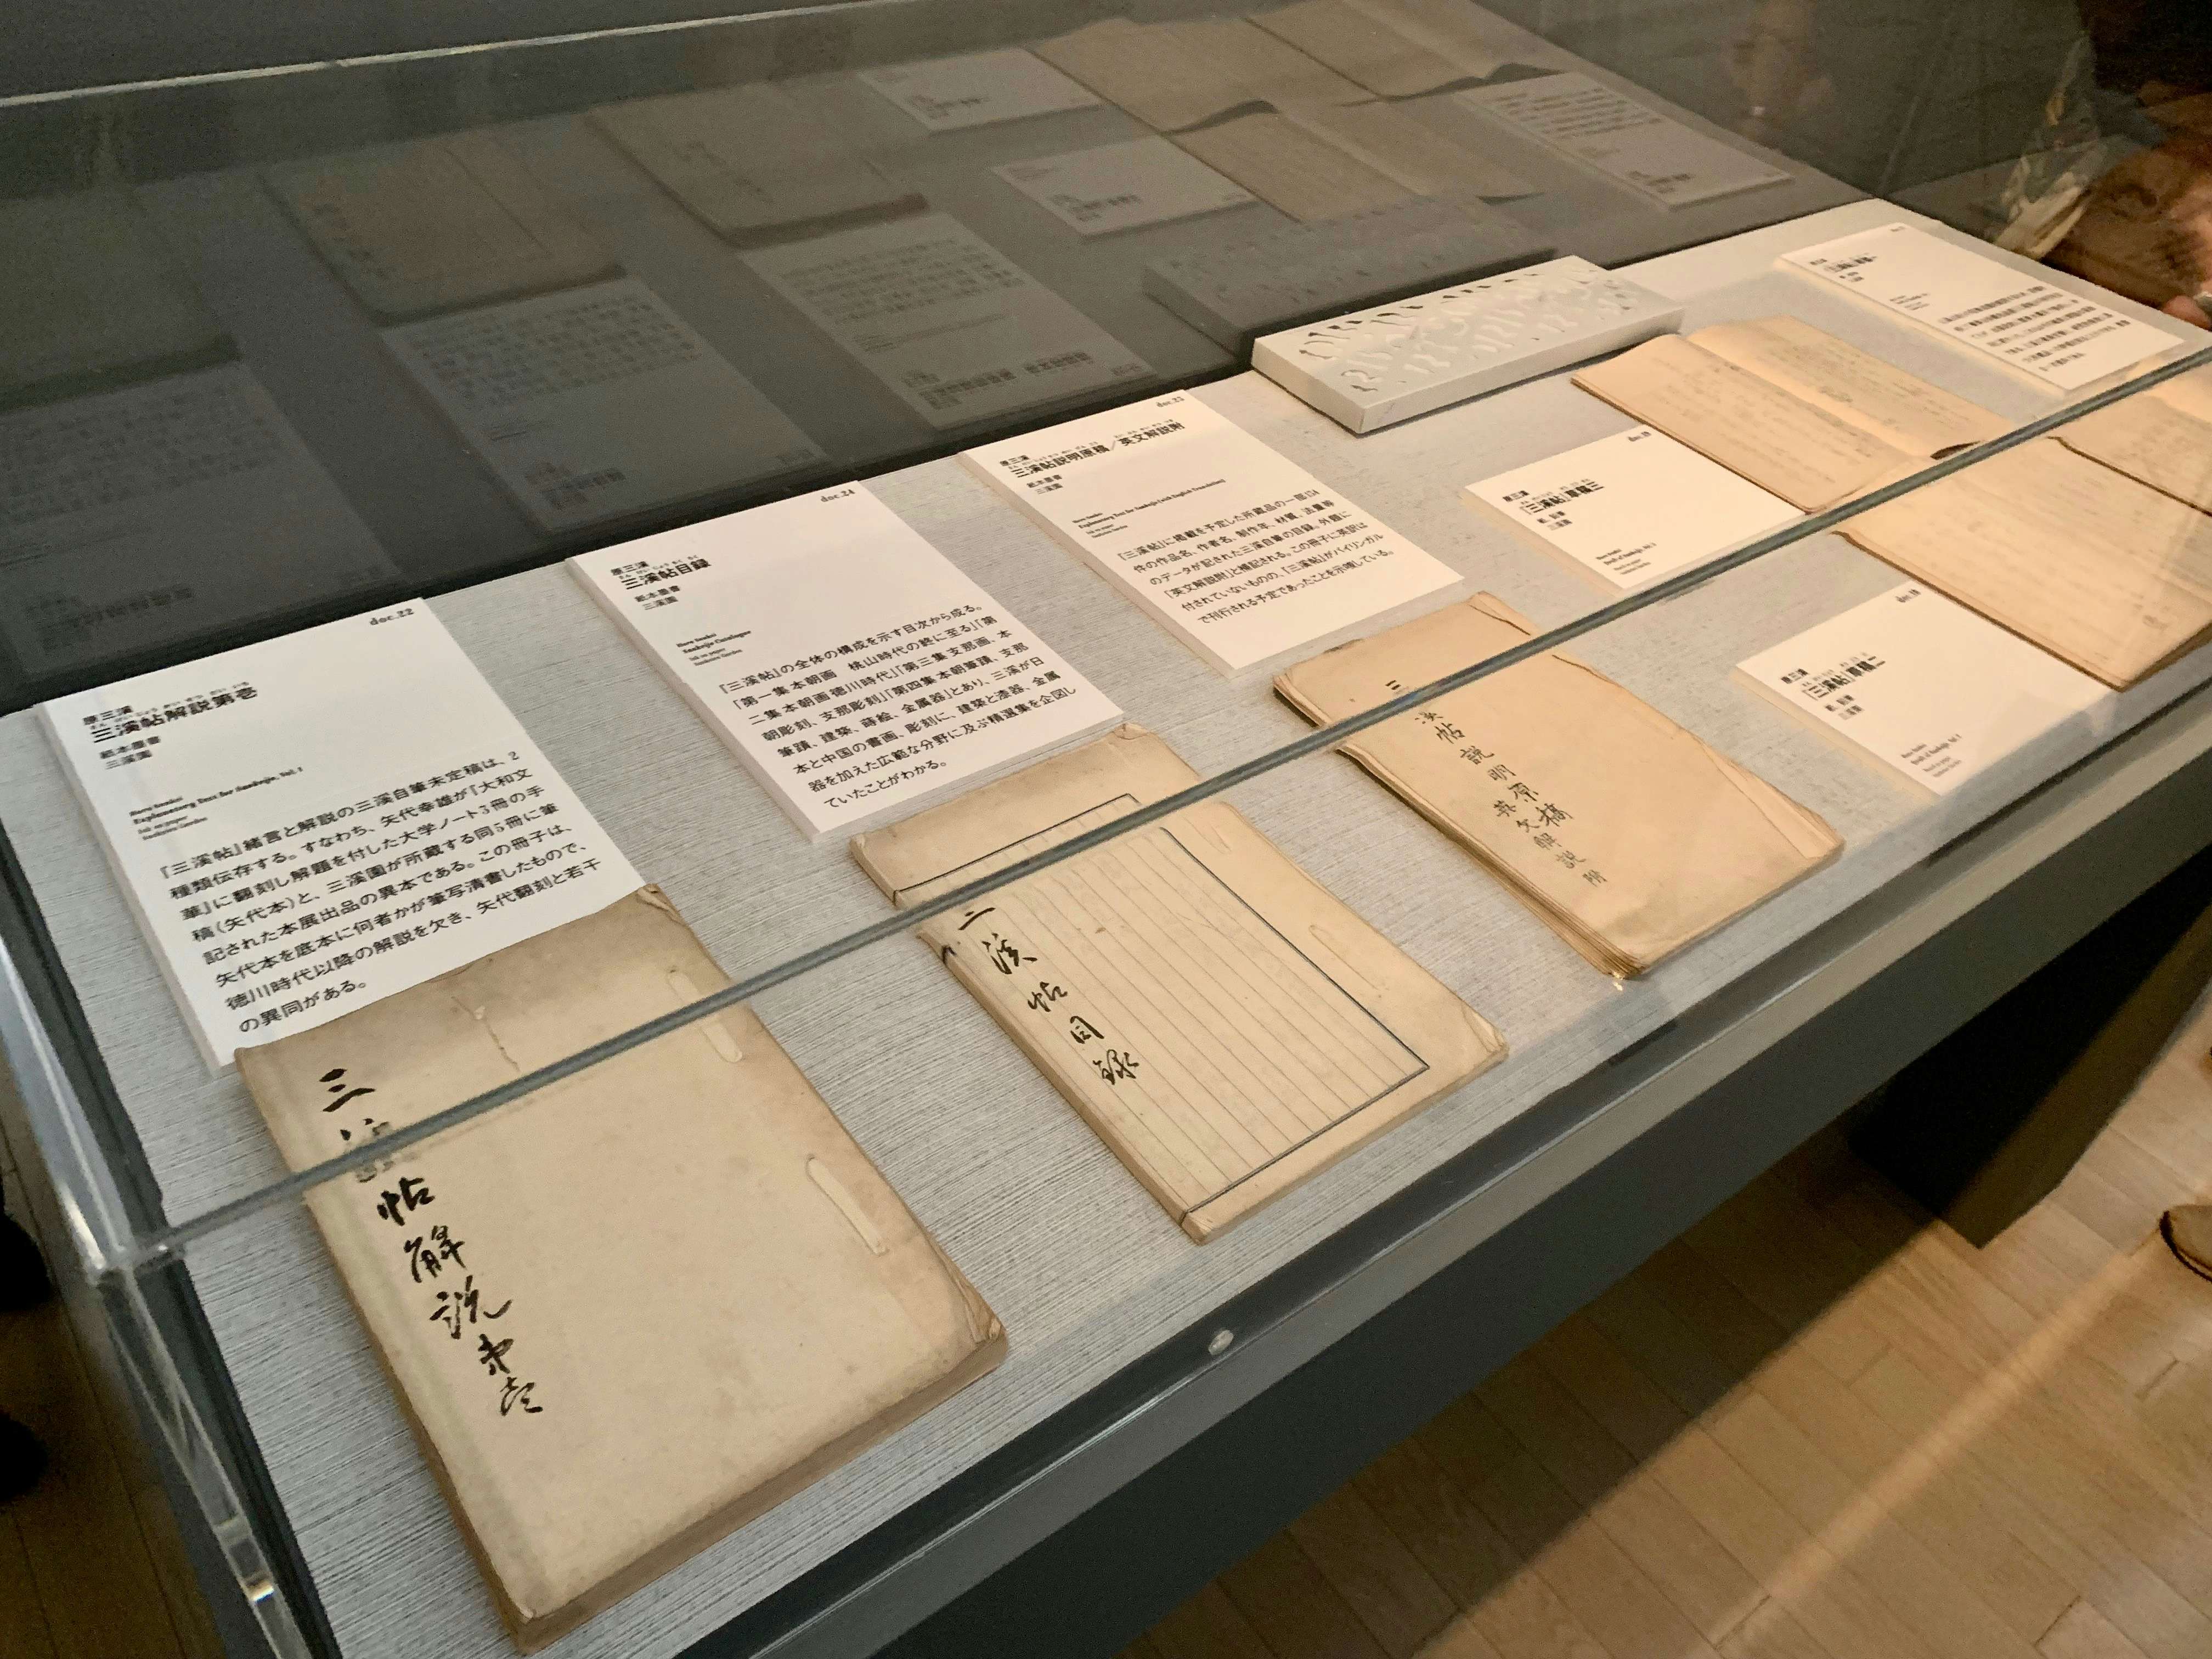 doc.22
原三溪
三溪帖解説第壱
紙本墨書
三溪園
Hara Sankei
Explanatory Text for Sankeijo, Vol. 1
Ink on paper
Sankeien Garden
『三溪帖』緒言と解説の三溪自筆未定稿は、2
種類伝存する。すなわち、矢代幸雄が『大和文
華』に翻刻し解題を付した大学ノート3冊の手
稿(矢代本)と、三溪園が所蔵する同5冊に筆
記された本展出品の異本である。この冊子は、
矢代本を底本に何者かが筆写清書したもので、
徳川時代以降の解説を欠き、矢代翻刻と若干
の異同がある。
三溪帖解説第壱
doc.24
原三溪
さんけいじょうもくろく
三溪帖目録
紙本墨書
三溪園
Hara Sankei
Sankeijo Catalogue
Ink on paper
Sankeien Garden
『三溪帖』の全体の構成を示す目次から成る。
「第一集 本朝画 桃山時代の終に至る」「第
二集 本朝画 徳川時代」「第三集 支那画、本
朝彫刻、支那彫刻」「第四集 本朝筆蹟、支那
筆蹟、建築、蒔絵、金属器」とあり、三溪が日
本と中国の書画、彫刻に、建築と漆器、金属
器を加えた広範な分野に及ぶ精選集を企図し
ていたことがわかる。
三溪帖目録
doc.23
原三溪
三溪帖説明原稿/英文解説附
紙本墨書
三溪園
Hara Sankei
Explanatory Text for Sankeijo (with English Translation)
Ink on paper
Sankeien Garden
『三溪帖』に掲載を予定した所蔵品の一部134
件の作品名、作者名、制作年、材質、法量等
のデータが記された三溪自筆の目録。外題に
「英文解説附」と補記される。この冊子に英訳は
付されていないものの、『三溪帖』がバイリンガル
で刊行される予定であったことを示唆している。
三溪帖説明原稿
英文解説附
doc.19
原三溪
『三溪帖』草稿三
紙、鉛筆
三溪園
Hara Sankei
doc.18
原三溪
『三溪帖』草稿二
紙、鉛筆
三溪園
Hara Sankei